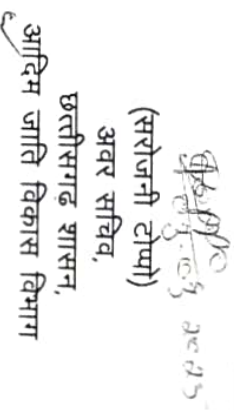 (सरोजनी टोप्पो)
अवर सचिव,
छत्तीसगढ़ शासन,
आदिम जाति विकास विभाग